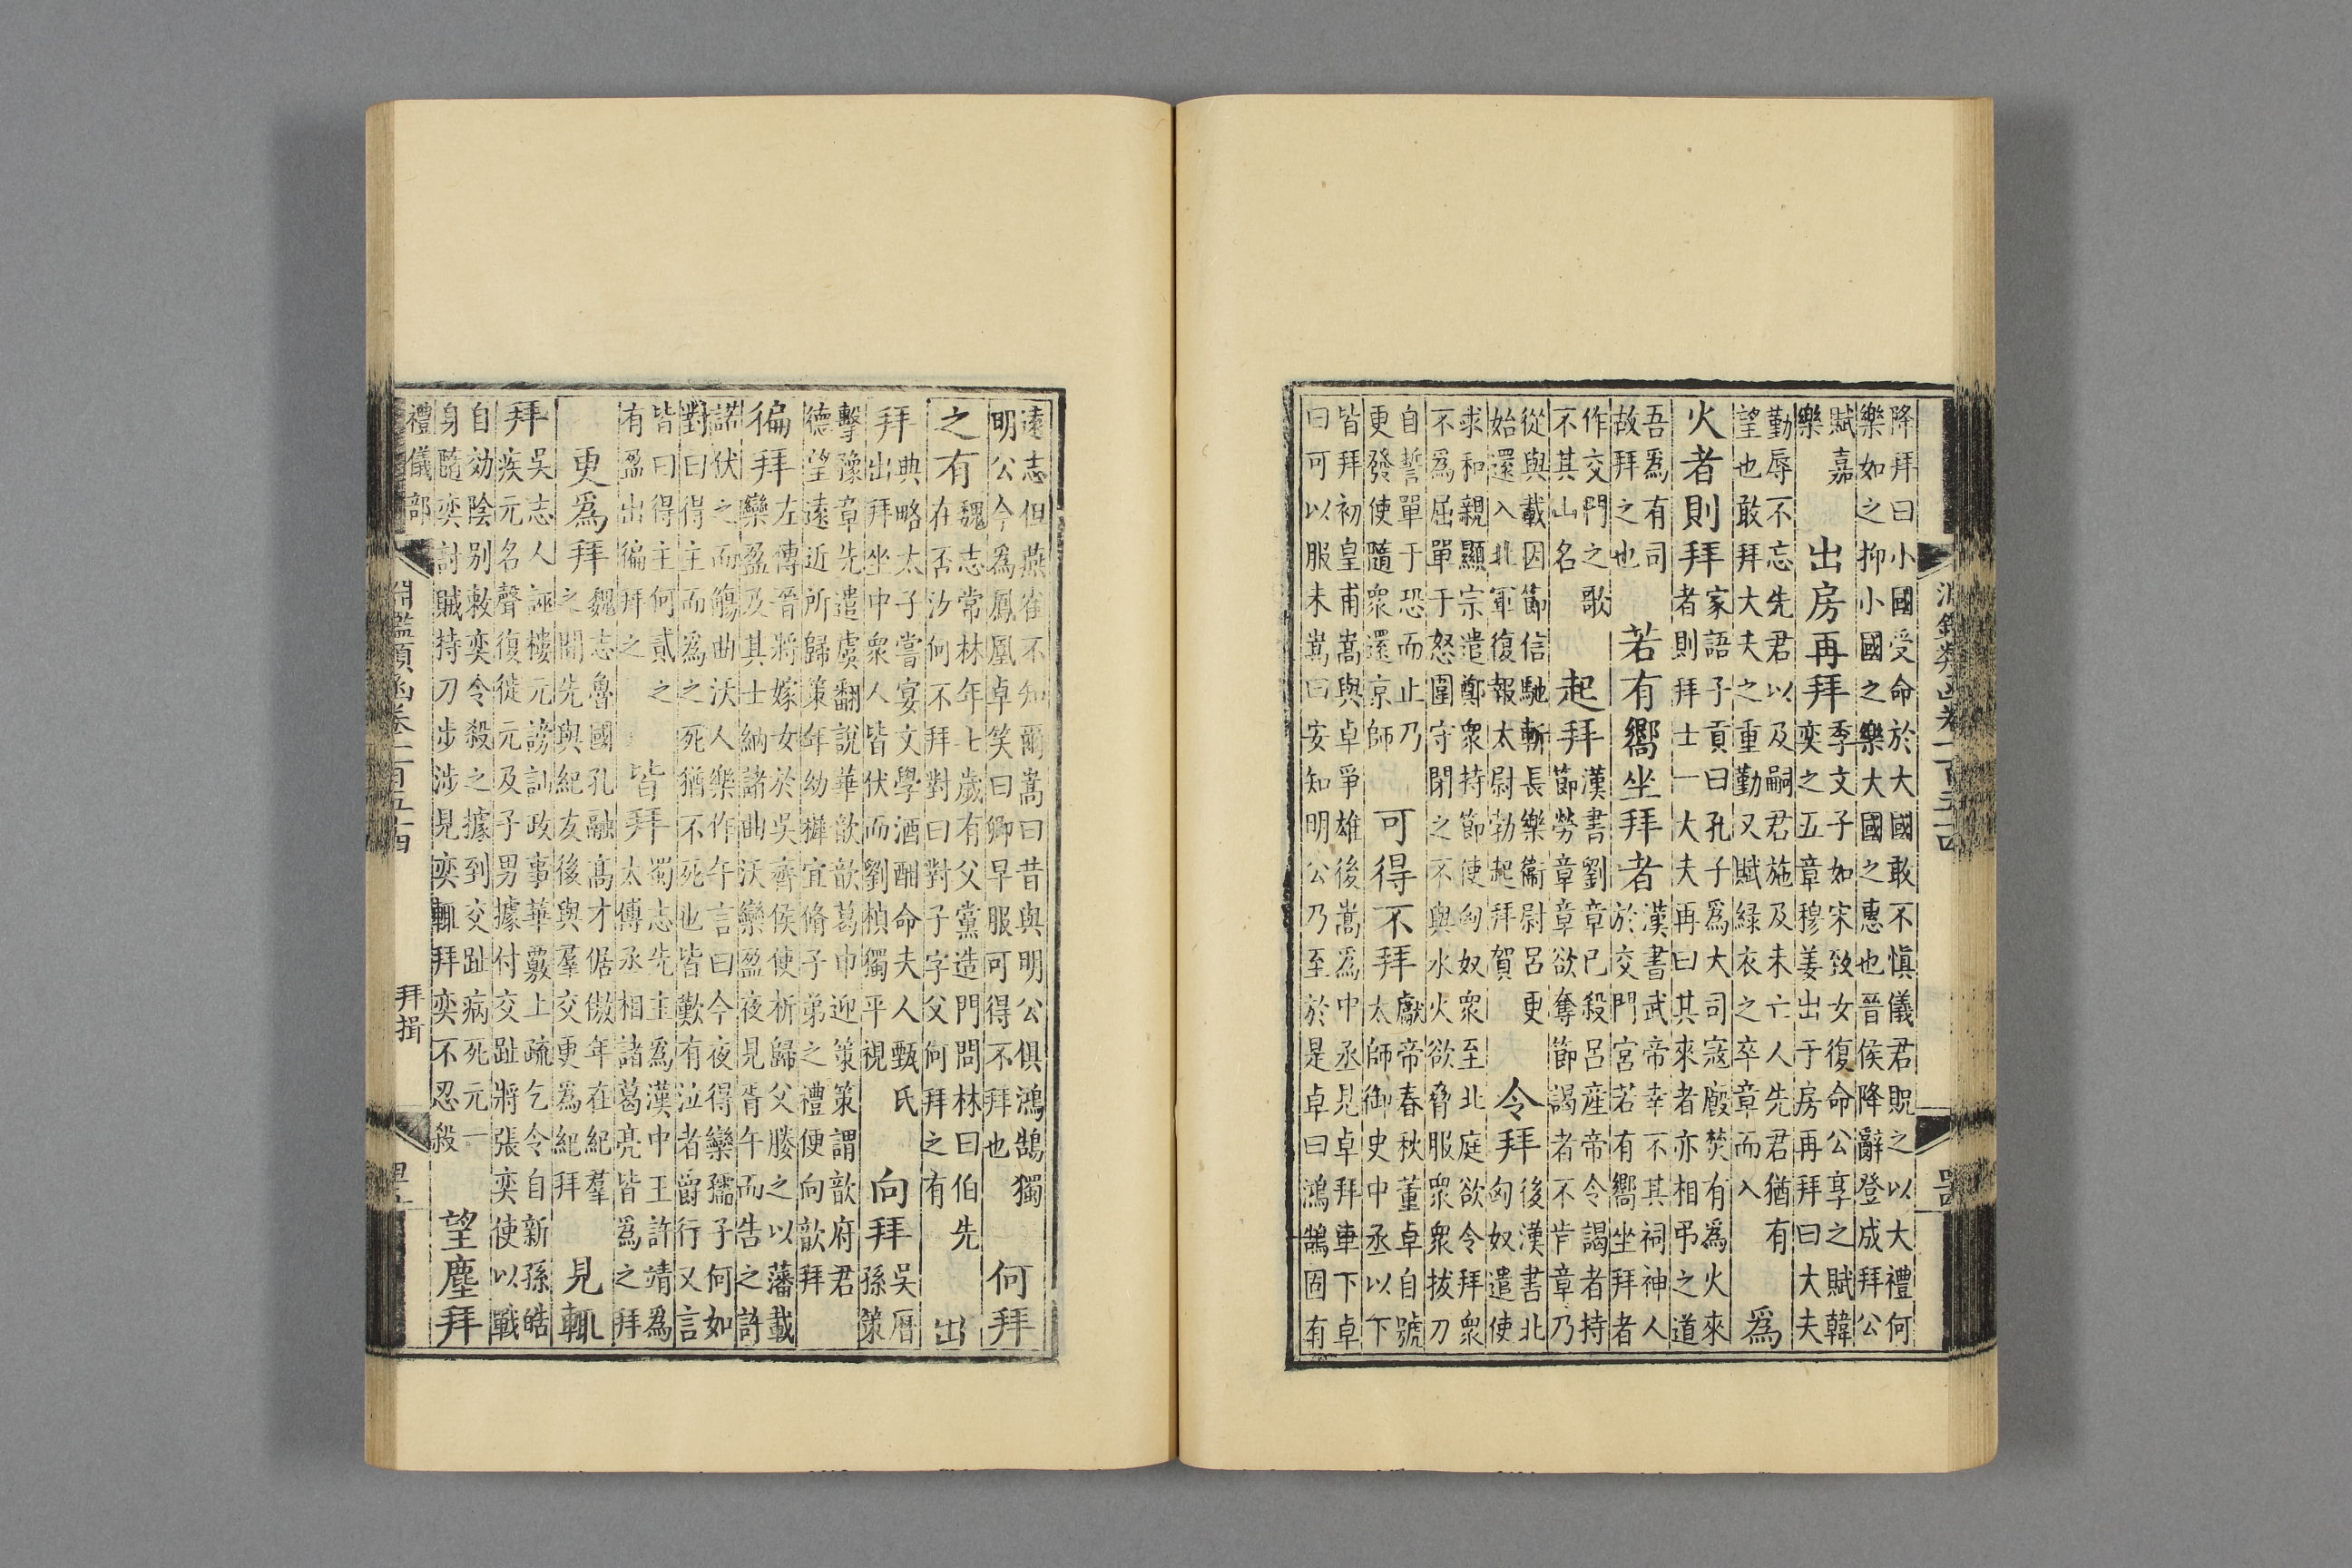 降拜曰小國受命於大國敢不慎儀君貺之以大禮何
樂如之抑小國之樂大國之惠也晉侯降辭登成拜公
賦嘉
樂
出房再拜
季文子如宋致女復命公享之賦韓
奕之五章穆姜出于房再拜曰大夫
勤辱不忘先君以及嗣君施及未亡人先君猶有
望也敢拜大夫之重勤又賦綠衣之卒章而入
爲
火者則拜
家語子貢曰孔子爲大司寇廄焚有爲火來
者則拜士一大夫再曰其來者亦相弔之道
吾爲有司
故拜之也
若有嚮坐拜者
漢書武帝幸不其祠神人
於交門宮若有嚮坐拜者
作交門之歌
不其山名
起拜
漢書劉章已殺呂產帝令謁者持
節勞章章欲奪節謁者不肯章乃
從與載因節信馳斬長樂衞尉呂更
始還入北軍復報太尉勃起拜賀
令拜
後漢書北
匈奴遣使
求和親顯宗遣鄭衆持節使匈奴衆至北庭欲令拜衆
不爲屈單于怒圍守閉之不與水火欲脅服衆衆拔刀
自誓單于恐而止乃
更發使隨衆還京師
可得不拜
獻帝春秋董卓自號
太師御史中丞以下
皆拜初皇甫嵩與卓爭雄後嵩爲中丞見卓拜車下卓
曰可以服未嵩曰安知明公乃至於是卓曰鴻鵠固有
淵鑑類函卷二百五十四
遠志但燕雀不知爾嵩曰昔與明公俱鴻鵠獨
明公今爲鳳凰卓笑曰卿早服可得不拜也
何拜
之有
魏志常林年七歲有父黨造門問林曰伯先
在否汝何不拜對曰對子字父何拜之有
出
拜
典略太子嘗宴文學酒酣命夫人甄氏
出拜坐中衆人皆伏而劉楨獨平視
向拜
吳曆
孫策
擊豫章先遣虞翻說華歆歆葛巾迎策策謂歆府君
德望遠近所歸策年幼穉宜脩子弟之禮便向歆拜
徧拜
左傳晉將嫁女於吳齊侯使析歸父媵之以藩載
欒盈及其士納諸曲沃欒盈夜見胥午而告之許
諾伏之而觴曲沃人樂作午言曰今夜得欒孺子何如
對曰得主而爲之死猶不死也皆歎有泣者爵行又言
皆曰得主何貳之
有盈出徧拜之
皆拜
蜀志先主爲漢中王許靖爲
太傅丞相諸葛亮皆爲之拜
更爲拜
魏志魯國孔融高才倨傲年在紀羣
之間先與紀友後與羣交更爲紀拜
見輒
拜
吳志人誣樓元謗訕政事華覈上疏乞令自新孫皓
疾元名聲復徙元及子男據付交趾將張奕使以戰
自効陰別敕奕令殺之據到交趾病死元一
身隨奕討賊持刀步涉見奕輒拜奕不忍殺
望塵拜
禮儀部
淵鑑類函卷二百五十四
拜揖